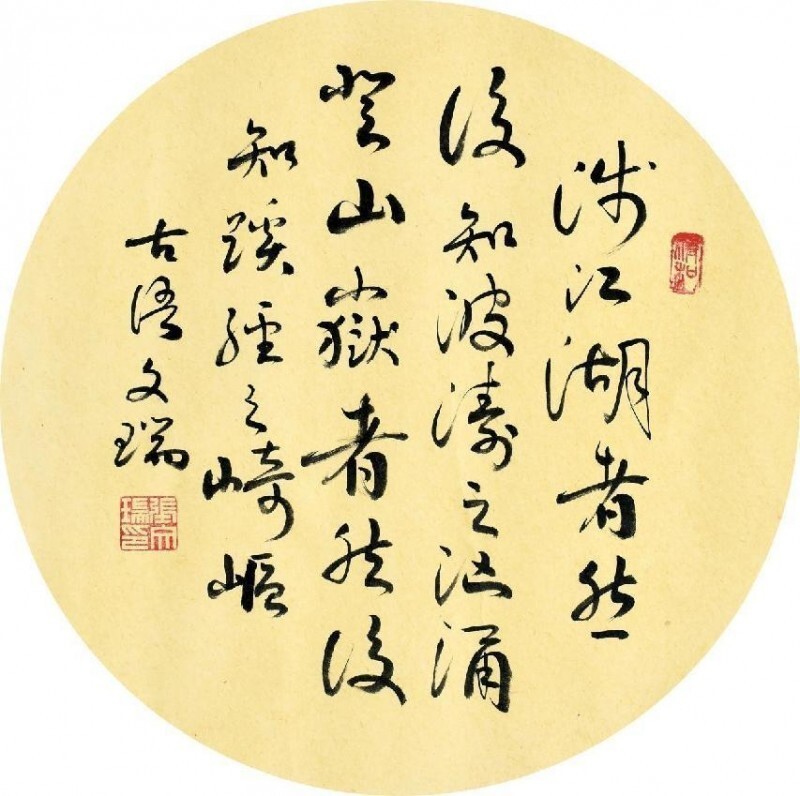 涉江湖者然
後知波濤之洶涌
登山嶽者然後
知蹊徑之崎嶇
古語文瑞
張文瑞印